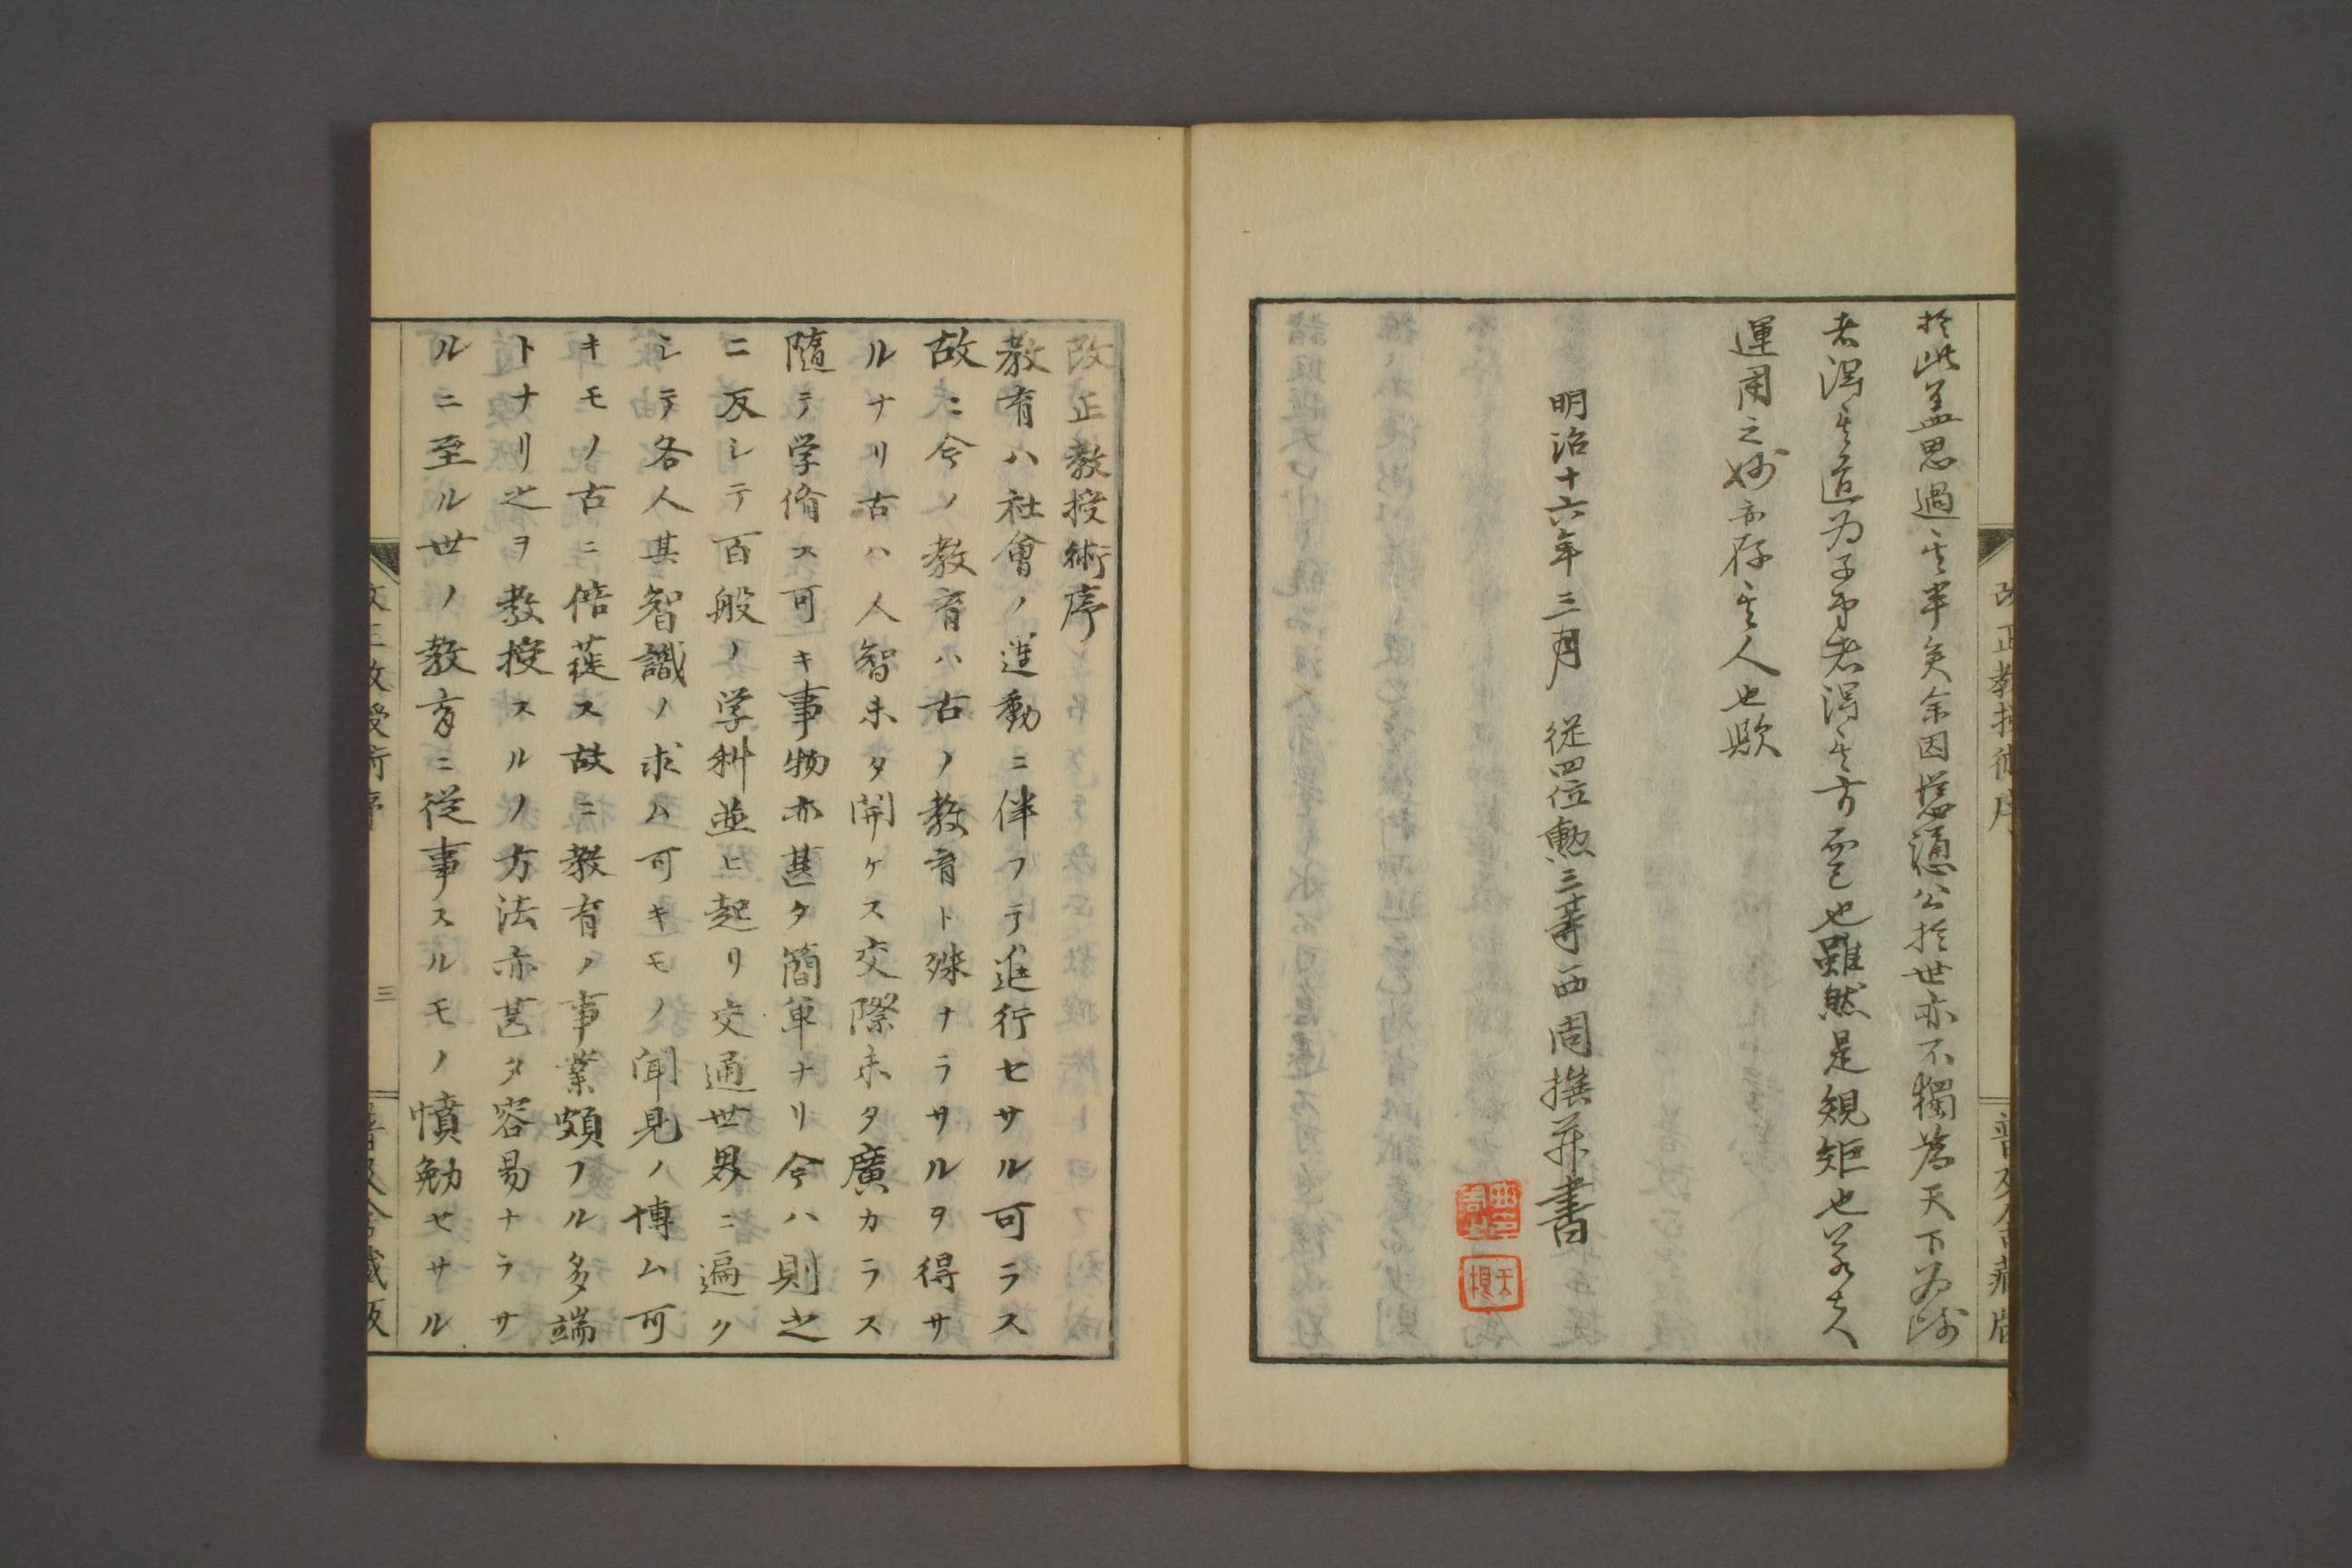 於此蓋思過其半矣余因慫慂公於世亦不獨為天下為師
者得其道為子弟者得其方而已也雖然是規矩也若夫
運用之妙亦存其人也歟
明治十六年三月 従四位勲三等西周撰并書
改正教授術序
普及舎蔵版
改正教授術序
教育ハ社會ノ運動ニ伴フテ進行セサル可ラス
故ニ今ノ教育ハ古ノ教育ト殊ナラサルヲ得サ
ルナリ古ハ人智未タ開ケス交際未タ廣カラス
隨テ学脩ス可キ事物亦甚タ簡単ナリ今ハ則之
ニ反シテ百般ノ学科並ヒ起リ交通世界ニ遍ク
シテ各人其智識ノ求ム可キモノ聞見ノ博ム可
キモノ古ニ倍蓰ス故ニ教育ノ事業頗フル多端
トナリ之ヲ教授スルノ方法亦甚タ容易ナラサ
ルニ至ル世ノ教育ニ從事スルモノ憤勉セサル
改正教授術序
三
普及舎蔵版